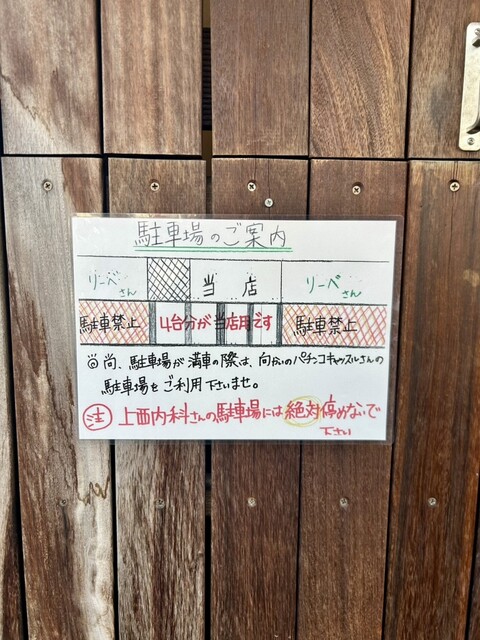 駐車場のご案内
リーベさん 当店 リーベさん
駐車禁止 4台分が当店用です 駐車禁止
尚、駐車場が満車の際は、向かいのパチンコキャッスルさんの
駐車場をご利用下さいませ。
注 上西内科さんの駐車場には絶対停めないで
下さい